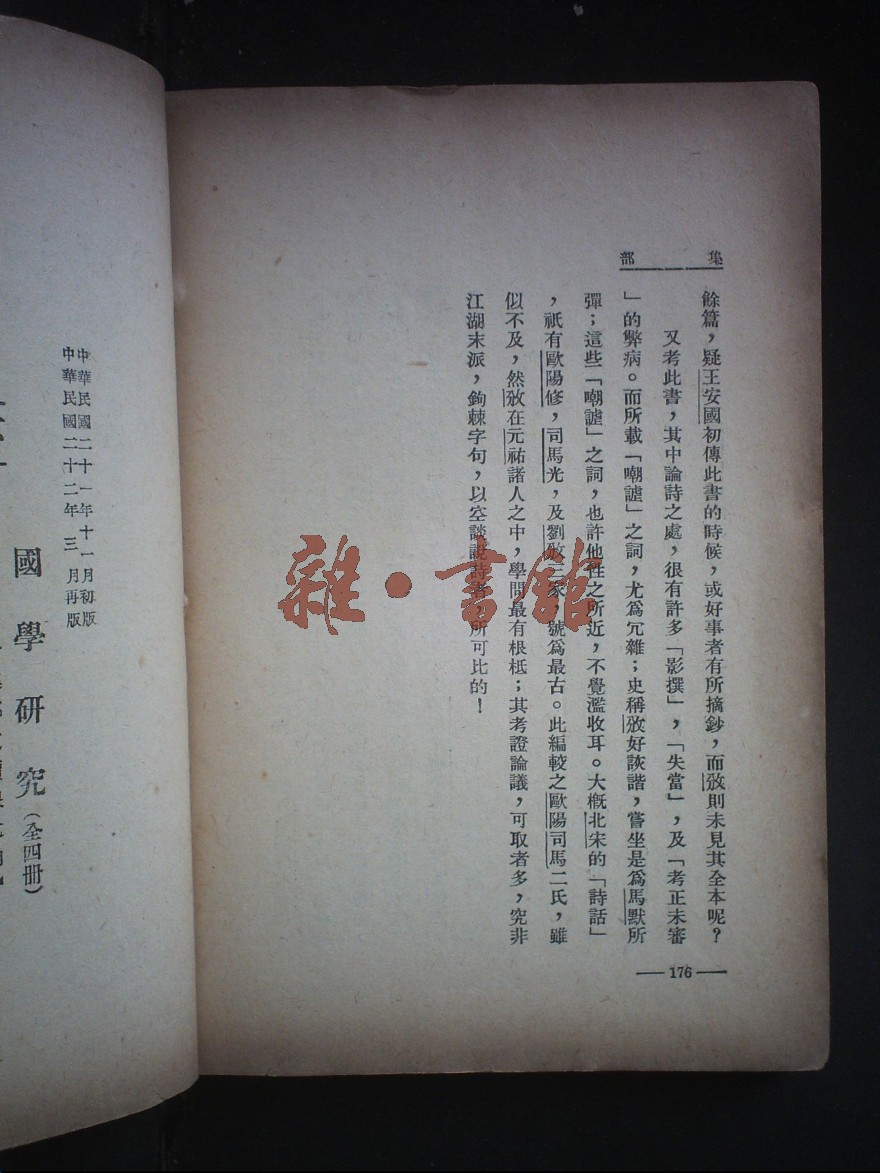 集部
餘篇，疑王安國初傳此書的時候，或好事者有所摘鈔，而攽則未見其全本呢？
又考此書，其中論詩之處，很有許多「影撰」，「失當」，及「考正未審
」的弊病。而所載「嘲謔」之詞，尤爲冗雜；史稱攽好詼諧，嘗坐是爲馬默所
彈；這些「嘲謔」之詞，也許他性之所近，不覺濫收耳。大概北宋的「詩話」
，祇有歐陽修，司馬光，及劉攽三家，號爲最古。此編較之歐陽司馬二氏，雖
似不及，然攽在元祐諸人之中，學問最有根柢；其考證論議，可取者多，究非
江湖末派，鉤棘字句，以空談說詩者，所可比的！
176
雜·書館
中華民國二十一年十一月初版
中華民國二十二年三月再版
國學研究（全四册）